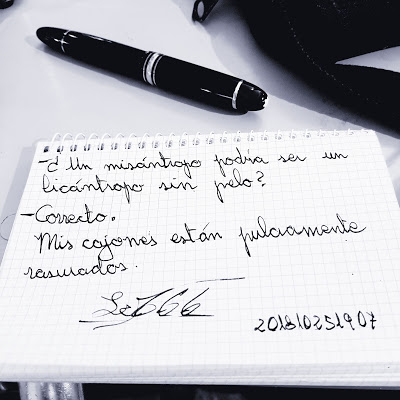 -¿Un misántropo podría ser un
licántropo sin pelo?
-Correcto.
Mis cojones están pulcramente
rasurados.
201810251907